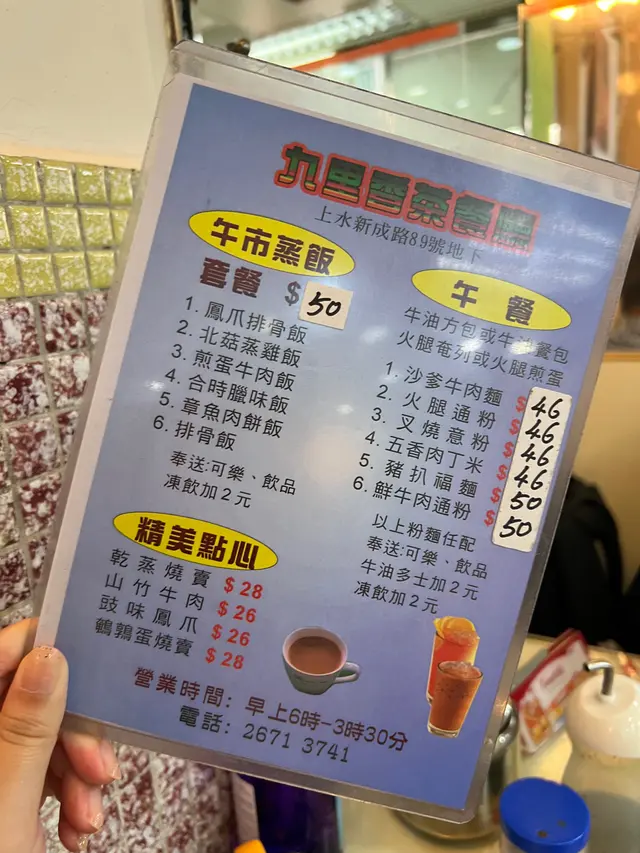 九里香茶餐廳
上水新成路89號地下
午市蒸飯
套餐 $50
1. 鳳爪排骨飯
2. 北菇蒸雞飯
3. 煎蛋牛肉飯
4. 合時臘味飯
5. 章魚肉餅飯
6. 排骨飯
奉送:可樂、飲品
凍飲加2元
精美點心
乾蒸燒賣 $28
山竹牛肉 $26
豉味鳳爪 $26
鵪鶉蛋燒賣 $28
午餐
牛油方包或牛油餐包
火腿奄列或火腿煎蛋
1. 沙爹牛肉麵 $46
2. 火腿通粉 $46
3. 叉燒意粉 $46
4. 五香肉丁米 $46
5. 豬扒福麵 $50
6. 鮮牛肉通粉 $50
以上粉麵任配
奉送:可樂、飲品
牛油多士加2元
凍飲加2元
營業時間: 早上6時-3時30分
電話: 2671 3741